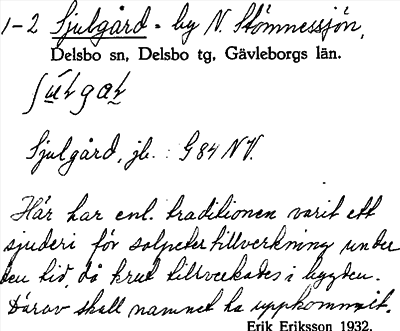 1-2 Sjulgård - by N. Stömnessjön,
Delsbo sn, Delsbo tg, Gävleborgs län.
Sjulgård, jb. : G 84 NV.
Här har enl. traditionen varit ett
sjuderi för salpetertillverkning under
den tid, då krut tillverkades i bygden.
Därav skall namnet ha uppkommit.
Erik Eriksson 1932.